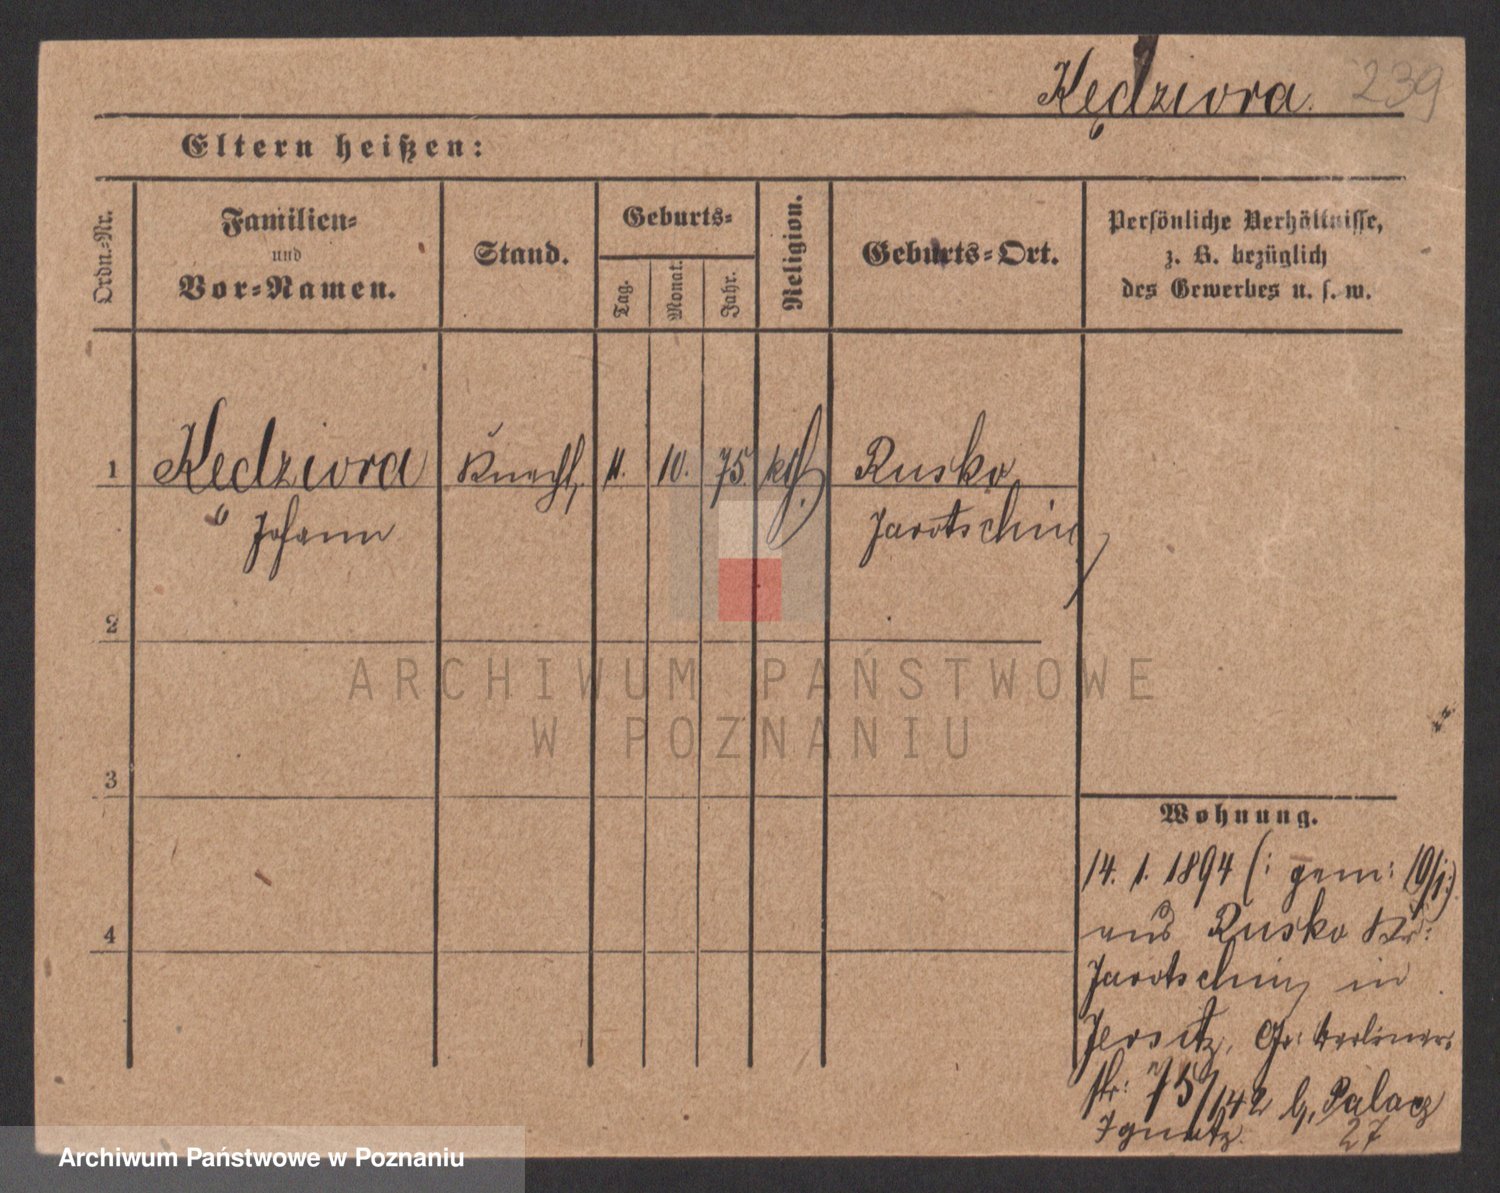 Kędziora. 239
Eltern heißen:
Ordn.-Nr.
Familien-
und
Vor-Namen.
Stand.
Geburts-
Tag.
Monat.
Jahr.
Religion.
Geburts-Ort.
Persönliche Verhältnisse,
z. B. bezüglich
des Gewerbes u. s. w.
1 Kędziora Knecht 11. 10. 75. kth. Rusko
Johann Jarotschin
2
3
4
Wohnung.
14. 1. 1894 (: gem: 19/1:)
aus Rusko Kr:
Jarotschin in
Jersitz, Gr: Berliner
str: 75/142 b, Palacz
Ignatz. 27
ARCHIWUM PAŃSTWOWE
W POZNANIU
Archiwum Państwowe w Poznaniu